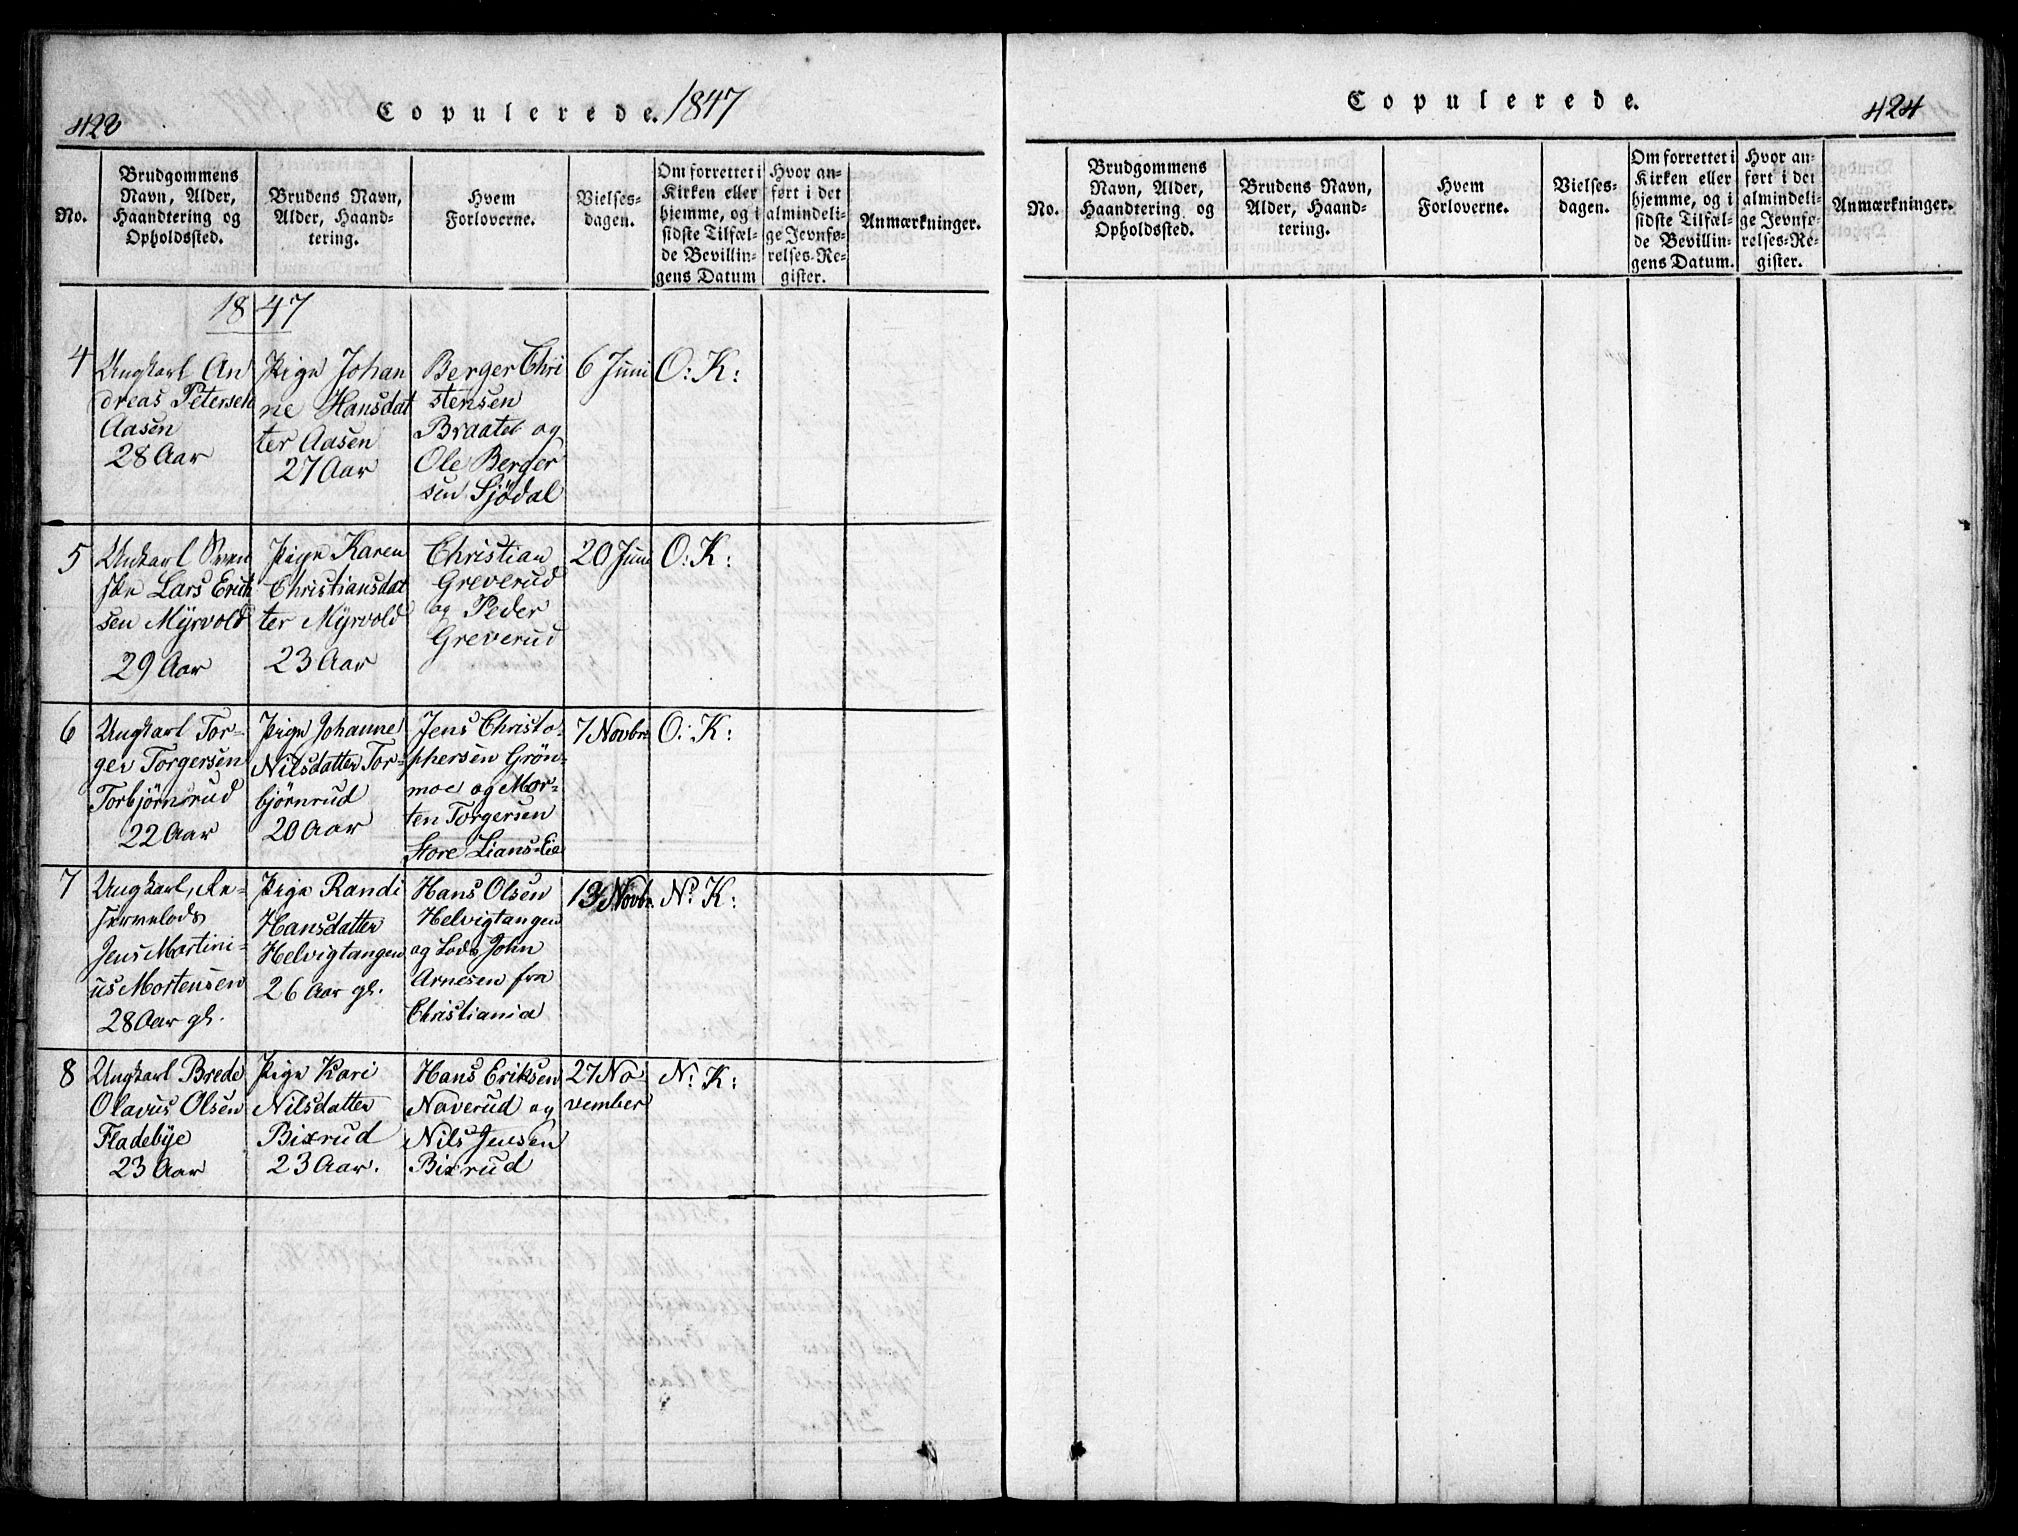 423
Copulerede. 1847
No.
Brudgommens
Navn, Alder,
Haandtering og
Opholdssted.
Brudens Navn,
Alder, Haand-
tering.
Hvem
Forloverne.
Vielses-
dagen.
Om forrettet i
Kirken eller
hjemme, og i
sidste Tilfæl-
de Bevillin-
gens Datum
Hvor an-
ført i det
almindeli-
ge Jevnfø-
relses-Re-
gister.
Anmærkninger.
1847
4
Ungkarl An
dreas Petersen
Aasen
28 Aar
Pige Johan
ne Hansdat
ter Aasen
27 Aar
Berger Chri
stensen
Braatel og
Ole Berger
sen Sjödal
6 Juni
O: K:
5
Unkarl Sven
ske Lars Erick
sen Myrvold
29 Aar
Pige Karen
Christiansdat
ter Myrvold
23 Aar
Christian
Greverud
og Peder
Greverud
20 Juni
O: K:
6
Ungkarl Tor-
ger Torgersen
Torbjörnsrud
22 Aar
Pige Johanne
Nilsdatter Tor-
björnrud
20 Aar
Jens Christo-
phersen Grön-
moe og Mor-
ten Torgersen
Store Lians-Eie
7 Novbr
O: K:
7
Ungkarl, Re-
servelods
Jens Martini-
us Mortensen
28 Aar gl.
Pige Randi
Hansdatter
Helvigtangen
26 Aar gl.
Hans Olsen
Helvigtangen
og Lods John
Arnesen fra
Christiania
13 Novbr.
N: K:
8
Ungkarl Brede
Olavus Olsen
Fladebye
23 Aar
Pige Kari
Nilsdatter
Bixrud
23 Aar.
Hans Eriksen
Naverud og
Nils Jensen
Bixrud
27 No
vember
N: K:
Copulerede.
424
No.
Brudgommens
Navn, Alder,
Haandtering og
Opholdssted.
Brudens Navn,
Alder, Haand-
tering.
Hvem
Forloverne.
Vielses-
dagen.
Om forrettet i
Kirken eller
hjemme, og i
sidste Tilfæl-
de Bevillin-
gens Datum.
Hvor an-
ført i det
almindeli-
ge Jevnfø-
relses-Re-
gister.
Anmærkninger.